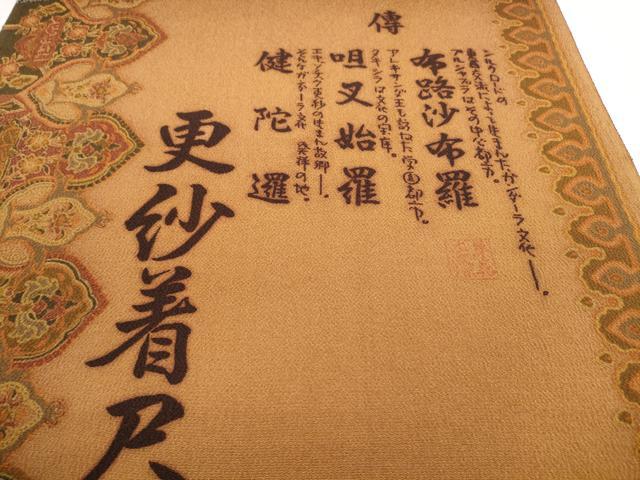 傳
シルクロードの
東西交流によって生まれたガンダーラ文化――。
プルシャプラはその中心都市。
布路沙布羅
アレキサンダ王も訪ねた学園都市。
タキシラは文化の宝庫。
咀叉始羅
エキゾチック更紗の生まれ故郷――。
そんなガンダーラ文化 発祥の地。
健陀邏
更紗着尺